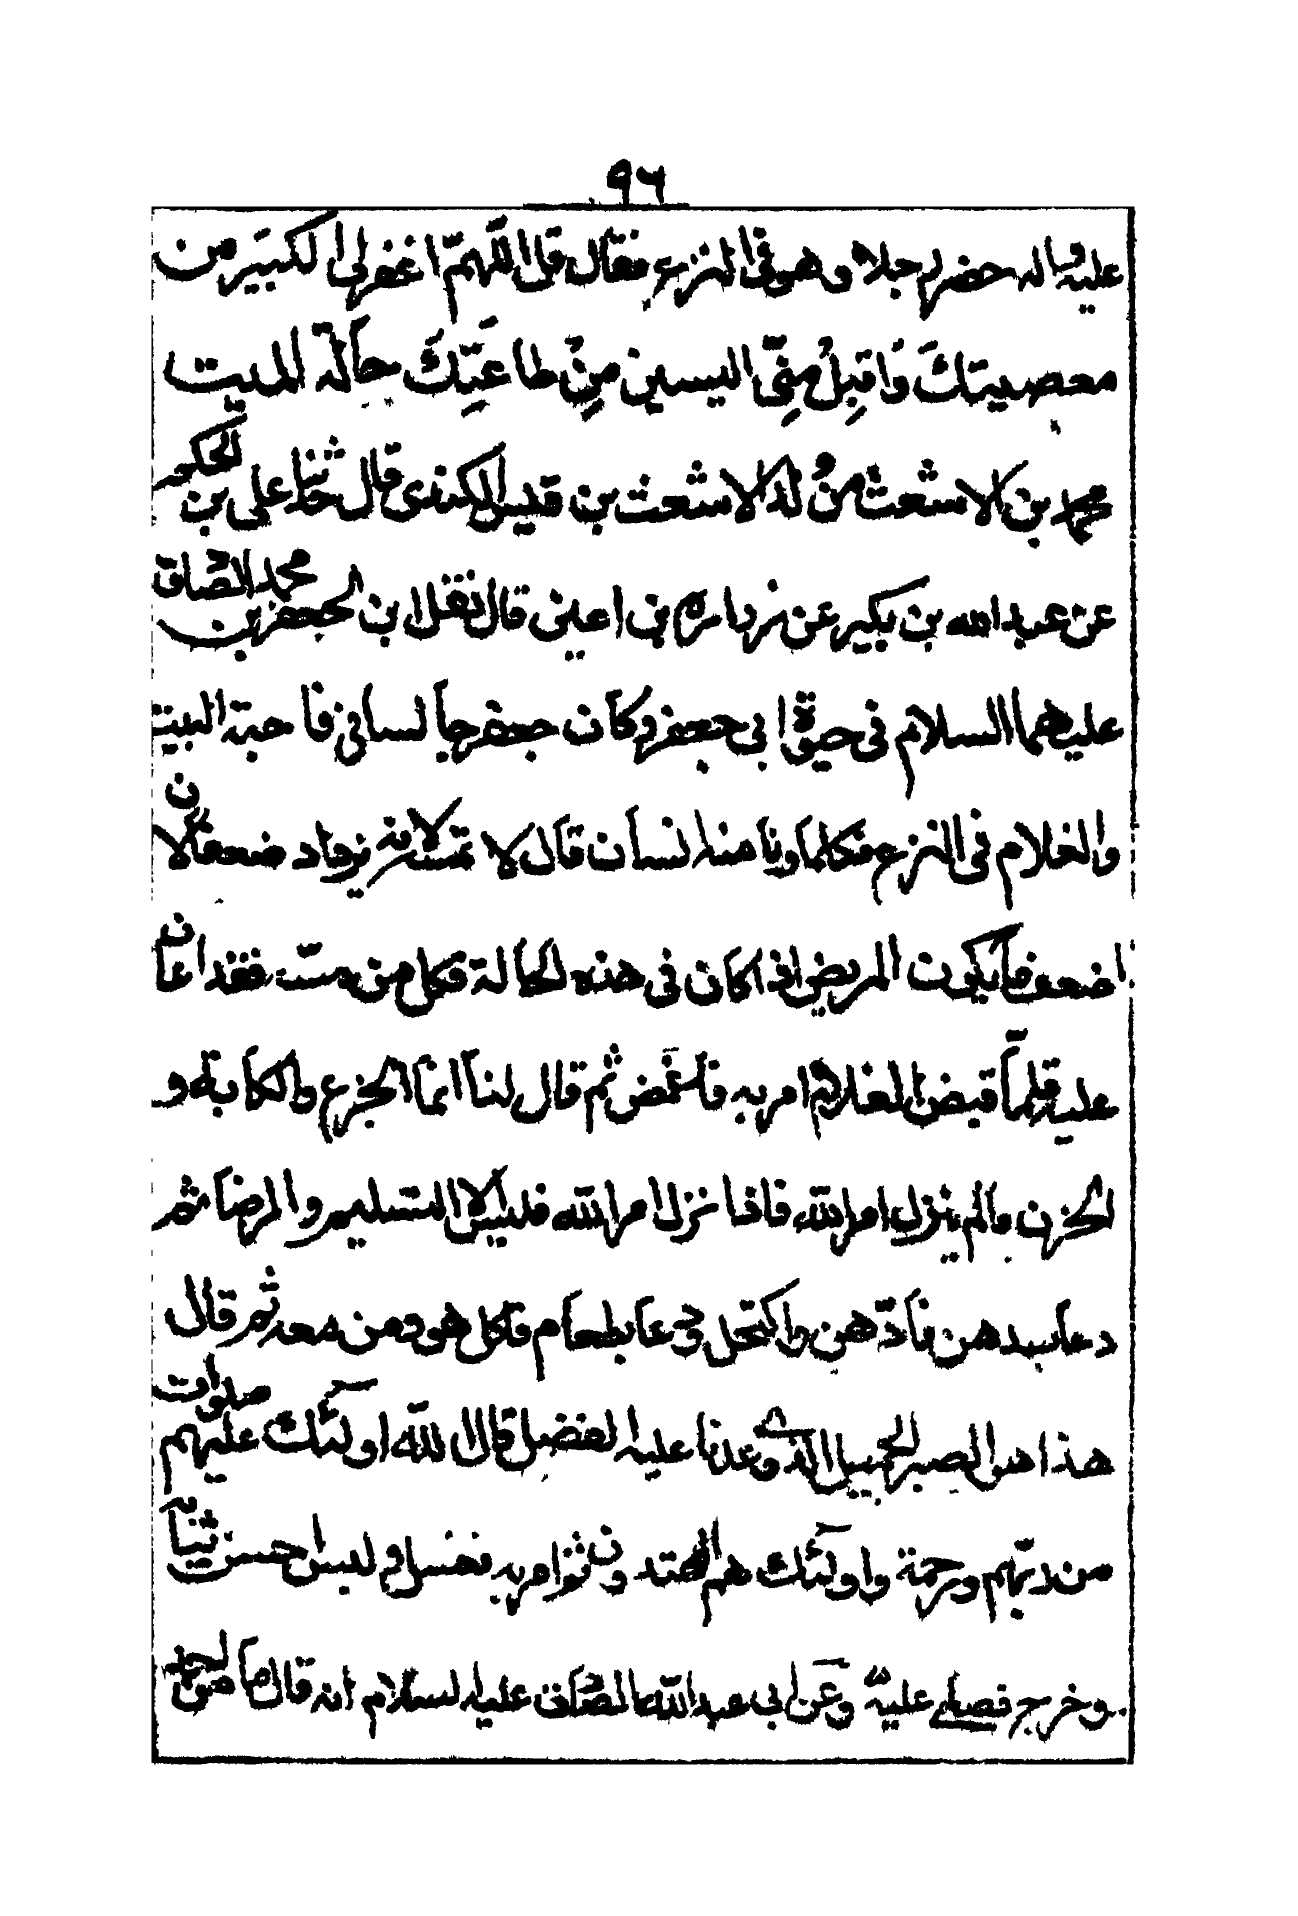 ٩٦
عليه واله حضر رجلا وهو في النزع فقال قل اللهمّ اغفر لي الكبير من
معصيتك وَاقبِلْ مِنّى اليسير مِنْ طاعَتِك حالة الميت
محمد بن الاشعث من ولد الاشعث بن قيس الكندى قال حدثنا على بن الحكم
عن عبد الله بن بكير عن زرارة بن اعين قال ثقل ابن لجعفر بن محمد الصادق
عليهما السلام في حيوة ابي جعفر وكان جعفر جالسا في ناحية البيت
والغلام في النزع فكلما دنا منه انسان قال لا تمسّه فانه يزداد ضعفا لان
اضعف ما يكون المريض اذا كان في هذه الحالة فكل من مسّه فقد اعان
عليه فلمّا قبض الغلام امر به فغمّض ثم قال لنا انمّا الجزع والكابة و
الحزن ما لم ينزل امر الله فاذا نزل امر الله فليس الا التسليم والرضا ثم
دعا بدهن فادّهن واكتحل ودعا بطعام فاكل هو ومن معه ثم قال
هذا هو الصبر الجميل الذي وعدنا عليه الفضل قال الله اولَٓئك عليهم صلوات
من ربّهم ورحمة واولَٓئك هم المهتدون ثم امر به فغسل ولبس احسن ثيابه
وخرج فصلى عليه وعن ابي عبد الله الصادق عليه السلام انه قال ما من احد